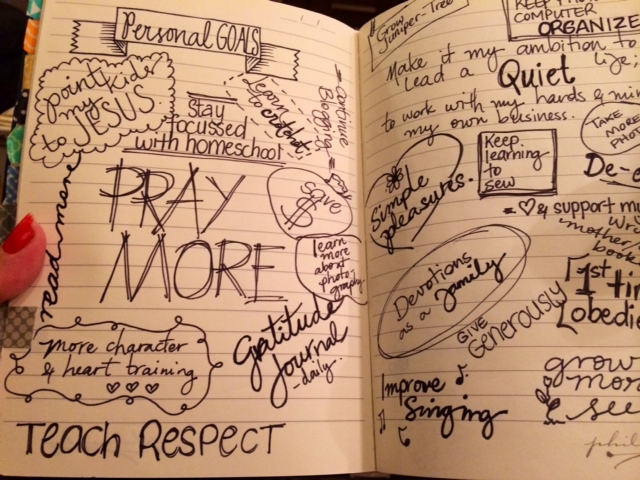 Personal GOALS
point my kids
to JESUS
stay
focussed
with homeschool
learn
to crochet
= Continue
Blogging =
read more
PRAY
MORE
save
$
learn
more
about
photo-
graphy.
More character
& heart training
Gratitude
Journal
-daily-
TEACH RESPECT
Grow
Juniper-Tree
KEEP
COMPUTER
ORGANIZE
Make it my ambition to
lead a Quiet life;
to work with my hands & min
my own business.
TAKE
MORE
PHO
Simple
pleasures.
Keep
learning
to
sew
De-c
= & support my
Wri
mother
book
Devotions
as a family
GIVE
Generously
1st tim
obedie
Improve
Singing
grow
more
see
phil